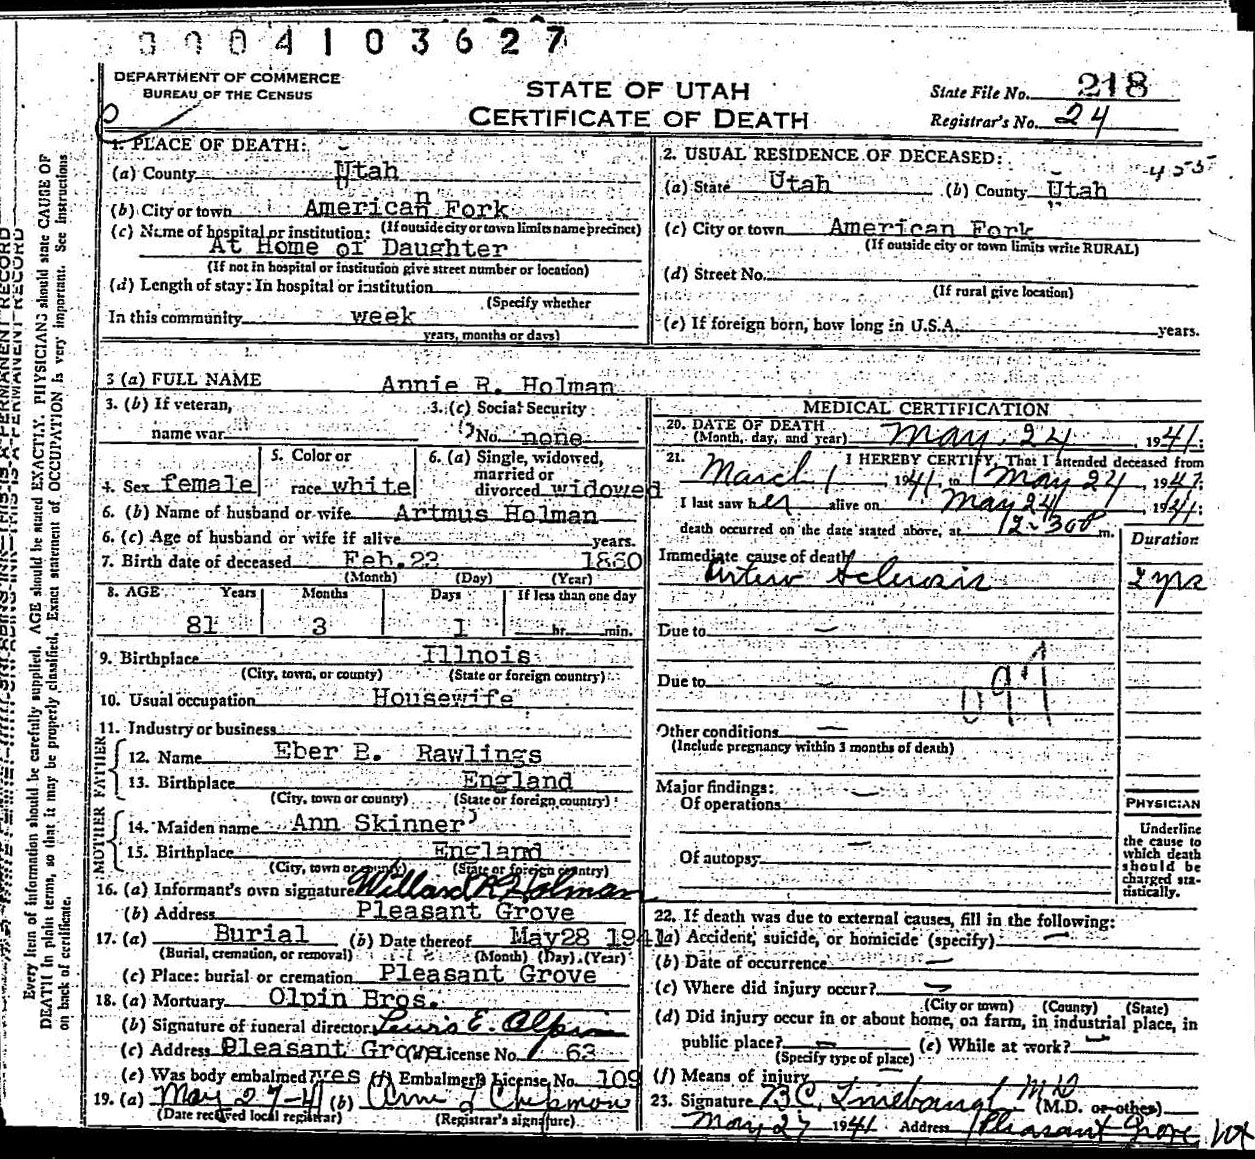 0004103627
DEPARTMENT OF COMMERCE
BUREAU OF THE CENSUS
STATE OF UTAH
CERTIFICATE OF DEATH
State File No. 218
Registrar's No. 24
1. PLACE OF DEATH:
(a) County Utah
(b) City or town American Fork
(If outside city or town limits name precinct)
(c) Name of hospital or institution:
At Home of Daughter
(If not in hospital or institution give street number or location)
(d) Length of stay: In hospital or institution
(Specify whether
In this community week
years, months or days)
2. USUAL RESIDENCE OF DECEASED:
(a) State Utah (b) County Utah
(c) City or town American Fork
(If outside city or town limits write RURAL)
(d) Street No.
(If rural give location)
(e) If foreign born, how long in U.S.A. years.
3 (a) FULL NAME Annie R. Holman
3. (b) If veteran,
name war
3. (c) Social Security
No. none
4. Sex female
5. Color or
race white
6. (a) Single, widowed,
married or
divorced widowed
6. (b) Name of husband or wife Artmus Holman
6. (c) Age of husband or wife if alive years.
7. Birth date of deceased Feb. 23 1860
(Month) (Day) (Year)
8. AGE Years Months Days If less than one day
81 3 1 hr. min.
9. Birthplace Illnois
(City, town, or county) (State or foreign country)
10. Usual occupation Housewife
11. Industry or business
FATHER
12. Name Eber B. Rawlings
13. Birthplace England
(City, town or county) (State or foreign country)
MOTHER
14. Maiden name Ann Skinner
15. Birthplace England
(City, town or county) (State or foreign country)
16. (a) Informant's own signature Willard R Holman
(b) Address Pleasant Grove
17. (a) Burial (b) Date thereof May 28 1941
(Burial, cremation, or removal) (Month) (Day) (Year)
(c) Place: burial or cremation Pleasant Grove
18. (a) Mortuary Olpin Bros.
(b) Signature of funeral director Lewis E. Olpin
(c) Address Pleasant Grove License No. 63
(e) Was body embalmed yes (f) Embalmer's License No. 109
19. (a) May 27-41 (b)
(Date received local registrar) (Registrar's signature)
MEDICAL CERTIFICATION
20. DATE OF DEATH
(Month, day, and year) May 24, 1941:
21. I HEREBY CERTIFY, That I attended deceased from
March 1 1941 to May 24 1941
I last saw her alive on May 24 1941
death occurred on the date stated above, at 12-30 P m.
Duration
Immediate cause of death
Arterio Sclerosis 2 yrs
Due to —
Due to
Other conditions —
(Include pregnancy within 3 months of death)
Major findings:
Of operations
Of autopsy
PHYSICIAN
Underline
the cause to
which death
should be
charged sta-
tistically.
22. If death was due to external causes, fill in the following:
(a) Accident, suicide, or homicide (specify) —
(b) Date of occurrence —
(c) Where did injury occur? —
(City or town) (County) (State)
(d) Did injury occur in or about home, on farm, in industrial place, in
public place? — (e) While at work? —
(Specify type of place)
(f) Means of injury
23. Signature M D
(M.D. or other)
May 27 1941 Address Pleasant Grove Ut
Every item of information should be carefully supplied. AGE should be stated EXACTLY. PHYSICIANS should state CAUSE OF
DEATH in plain terms, so that it may be properly classified. Exact statement of OCCUPATION is very important. See Instructions
on back of certificate.